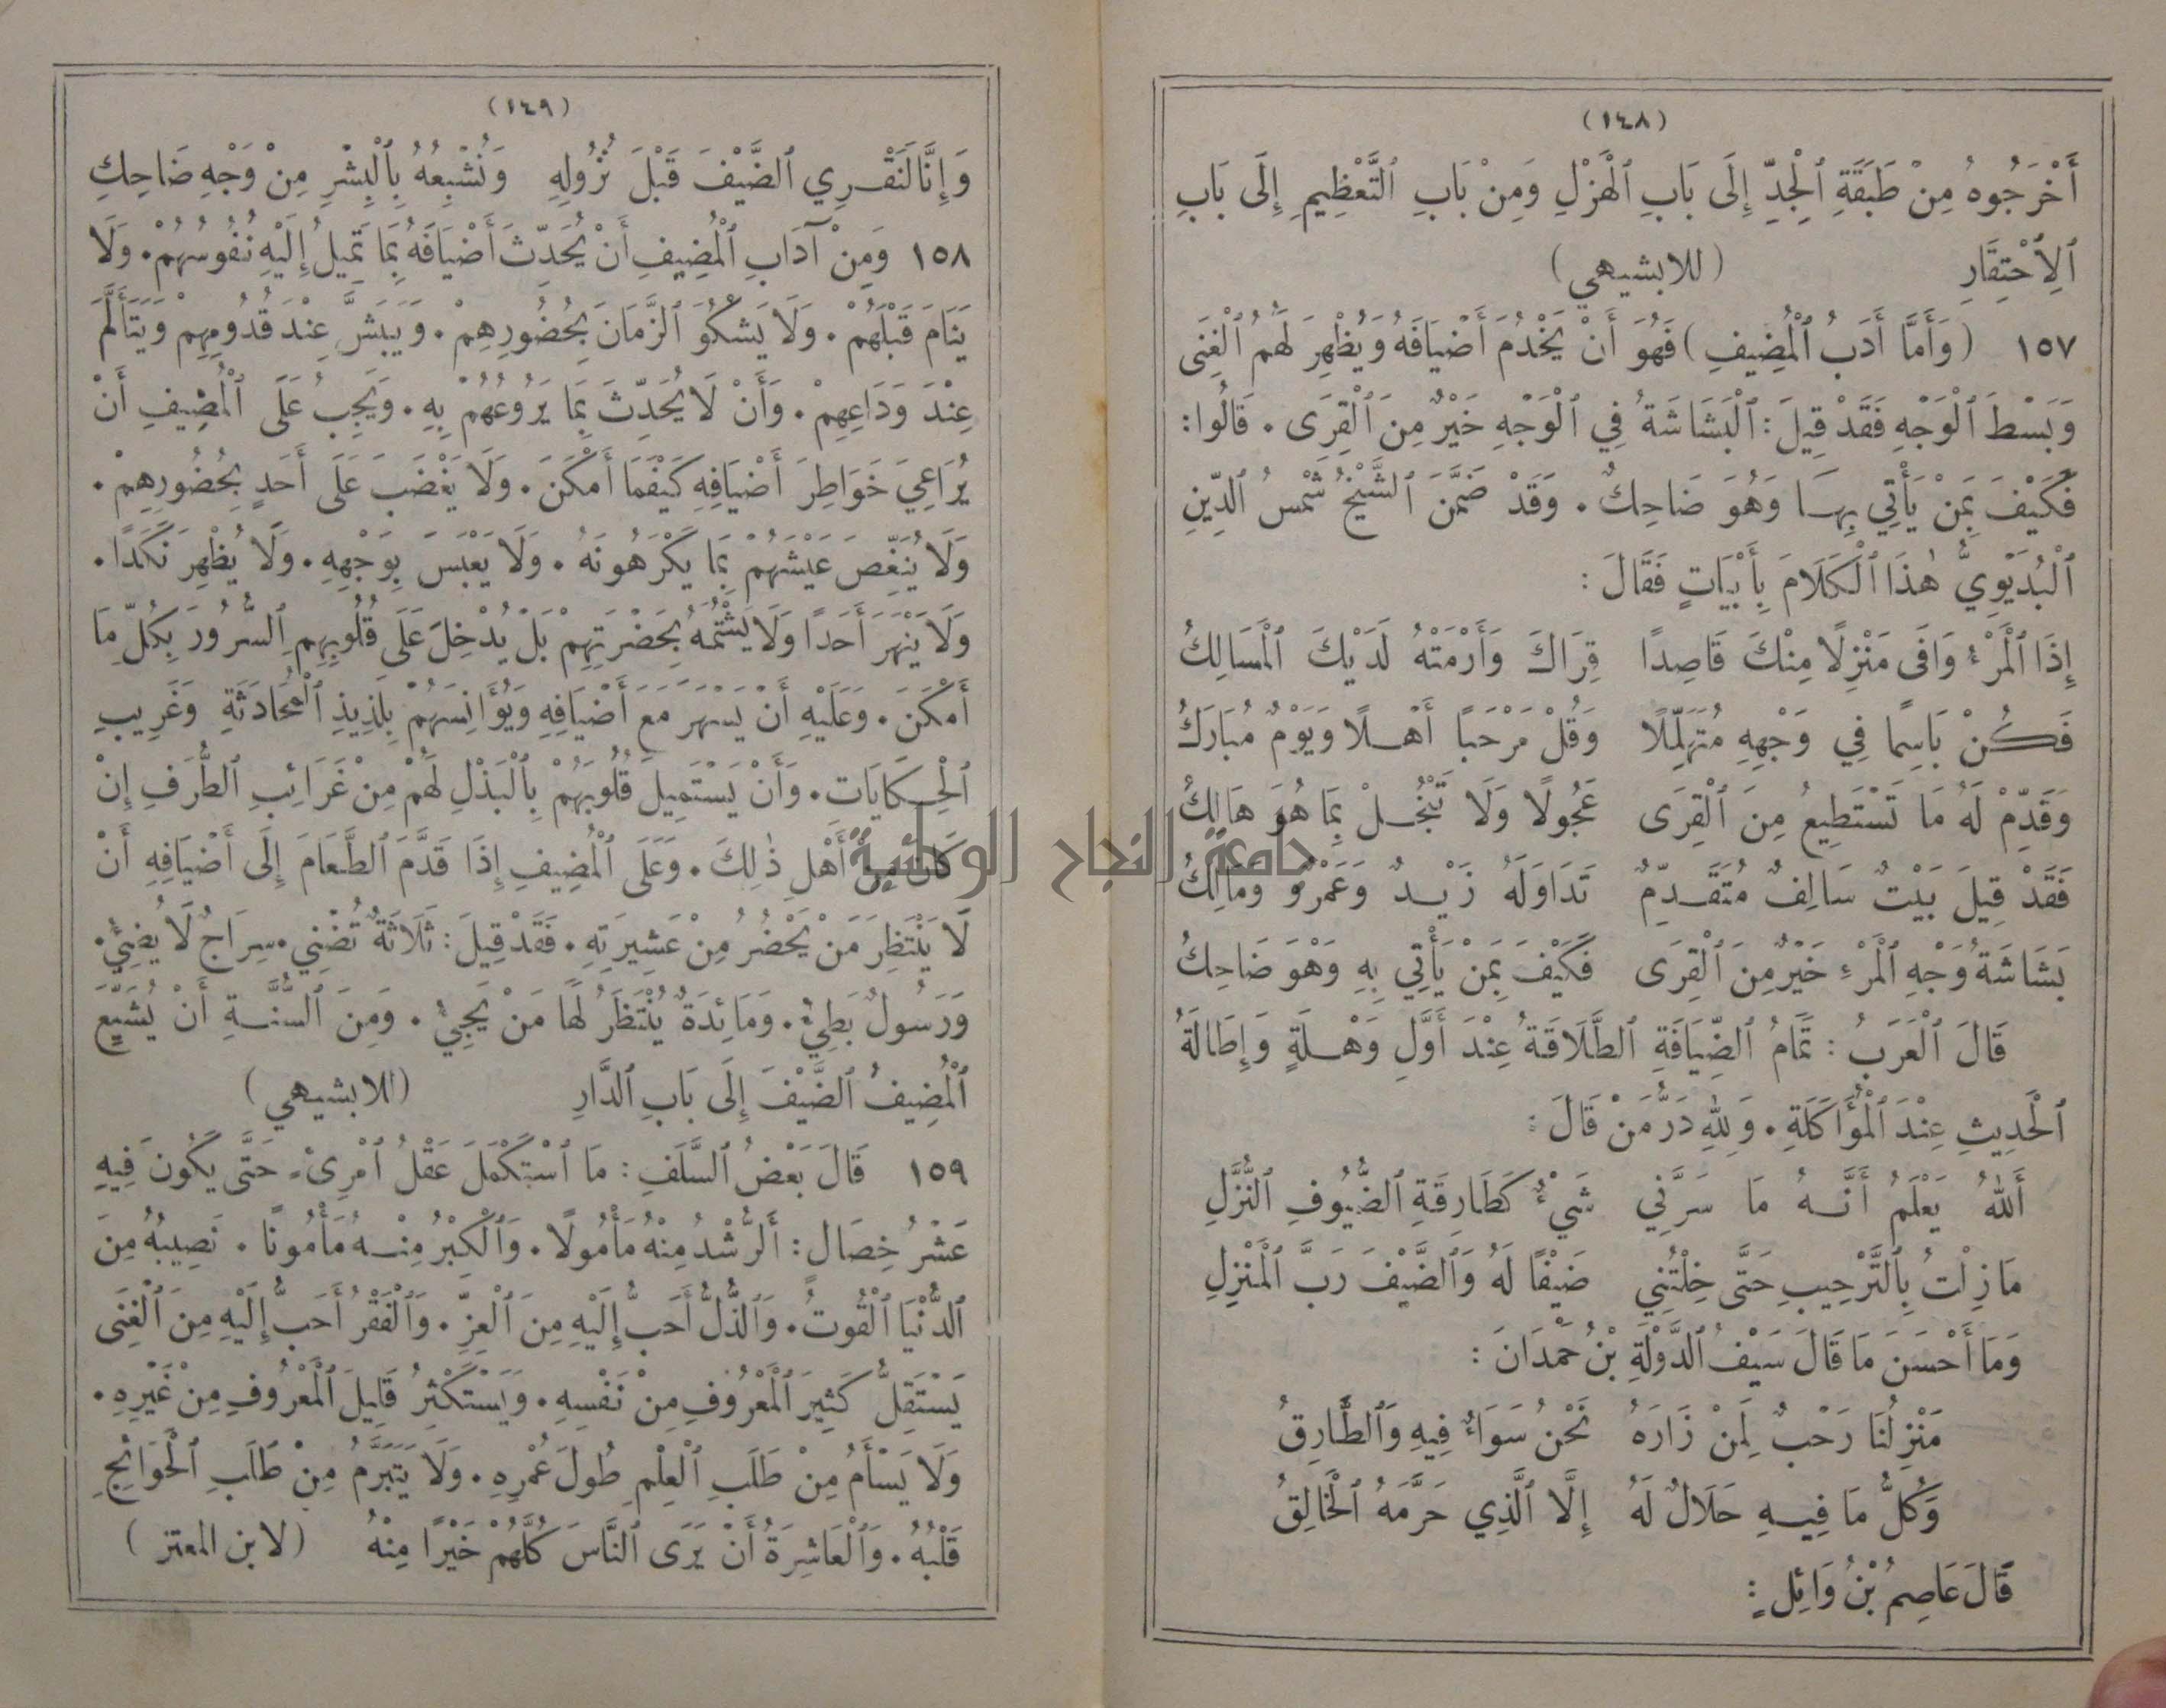 (١٤٨)
أَخْرَجُوهُ مِنْ طَبَقَةِ ٱلْجِدِّ إِلَى بَابِ ٱلْهَزْلِ وَمِنْ بَابِ ٱلتَّعْظِيمِ إِلَى بَابِ
ٱلِٱحْتِقَارِ (للابشيهي)
١٥٧ (وَأَمَّا أَدَبُ ٱلْمُضِيفِ) فَهُوَ أَنْ يَخْدُمَ أَضْيَافَهُ وَيُظْهِرَ لَهُمُ ٱلْغِنَى
وَبَسْطَ ٱلْوَجْهِ فَقَدْ قِيلَ: ٱلْبَشَاشَةُ فِي ٱلْوَجْهِ خَيْرٌ مِنَ ٱلْقِرَى. قَالُوا:
فَكَيْفَ بِمَنْ يَأْتِي بِهَا وَهُوَ ضَاحِكٌ. وَقَدْ ضَمَّنَ ٱلشَّيْخُ شَمْسُ ٱلدِّينِ
ٱلْبُدَيْوِيُّ هٰذَا ٱلْكَلَامَ بِأَبْيَاتٍ فَقَالَ:
إِذَا ٱلْمَرْءُ وَافَى مَنْزِلًا مِنْكَ قَاصِدًا قِرَاكَ وَأَرْمَتْهُ لَدَيْكَ ٱلْمَسَالِكُ
فَكُنْ بَاسِمًا فِي وَجْهِهِ مُتَهَلِّلًا وَقُلْ مَرْحَبًا أَهْلًا وَيَوْمٌ مُبَارَكُ
وَقَدِّمْ لَهُ مَا تَسْتَطِيعُ مِنَ ٱلْقِرَى عَجُولًا وَلَا تَبْخُلْ بِمَا هُوَ هَالِكُ
فَقَدْ قِيلَ بَيْتٌ سَالِفٌ مُتَقَدِّمٌ تَدَاوَلَهُ زَيْدٌ وَعَمْرٌو وَمَالِكُ
بَشَاشَةُ وَجْهِ ٱلْمَرْءِ خَيْرٌ مِنَ ٱلْقِرَى فَكَيْفَ بِمَنْ يَأْتِي بِهِ وَهْوَ ضَاحِكُ
قَالَ ٱلْعَرَبُ: تَمَامُ ٱلضِّيَافَةِ ٱلطَّلَاقَةُ عِنْدَ أَوَّلِ وَهْلَةٍ وَإِطَالَةُ
ٱلْحَدِيثِ عِنْدَ ٱلْمُؤَاكَلَةِ. وَلِلّٰهِ دَرُّ مَنْ قَالَ:
أَللهُ يَعْلَمُ أَنَّهُ مَا سَرَّنِي شَيْءٌ كَطَارِقَةِ ٱلضُّيُوفِ ٱلنُّزَّلِ
مَا زِلْتُ بِٱلتَّرْحِيبِ حَتَّى خِلْتُنِي ضَيْفًا لَهُ وَٱلضَّيْفَ رَبَّ ٱلْمَنْزِلِ
وَمَا أَحْسَنَ مَا قَالَ سَيْفُ ٱلدَّوْلَةِ بْنُ حَمْدَانَ:
مَنْزِلُنَا رَحْبٌ لِمَنْ زَارَهُ نَحْنُ سَوَاءٌ فِيهِ وَٱلطَّارِقُ
وَكُلُّ مَا فِيهِ حَلَالٌ لَهُ إِلَّا ٱلَّذِي حَرَّمَهُ ٱلْخَالِقُ
قَالَ عَاصِمُ بْنُ وَائِلٍ:
(١٤٩)
وَإِنَّا لَنَقْرِي ٱلضَّيْفَ قَبْلَ نُزُولِهِ وَنُشْبِعُهُ بِٱلْبِشْرِ مِنْ وَجْهِ ضَاحِكِ
١٥٨ وَمِنْ آدَابِ ٱلْمُضِيفِ أَنْ يُحَدِّثَ أَضْيَافَهُ بِمَا تَمِيلُ إِلَيْهِ نُفُوسُهُمْ. وَلَا
يَنَامَ قَبْلَهُمْ. وَلَا يَشْكُوَ ٱلزَّمَانَ بِحُضُورِهِمْ. وَيَبَشَّ عِنْدَ قُدُومِهِمْ وَيَتَأَلَّمَ
عِنْدَ وَدَاعِهِمْ. وَأَنْ لَا يُحَدِّثَ بِمَا يَرُوعُهُمْ بِهِ. وَيَجِبُ عَلَى ٱلْمُضِيفِ أَنْ
يُرَاعِيَ خَوَاطِرَ أَضْيَافِهِ كَيْفَمَا أَمْكَنَ. وَلَا يَغْضَبَ عَلَى أَحَدٍ بِحُضُورِهِمْ.
وَلَا يُنَغِّصَ عَيْشَهُمْ بِمَا يَكْرَهُونَهُ. وَلَا يَعْبَسَ بِوَجْهِهِ. وَلَا يُظْهِرَ نَكَدًا.
وَلَا يَنْهَرَ أَحَدًا وَلَا يَشْتُمَهُ بِحَضْرَتِهِمْ بَلْ يُدْخِلَ عَلَى قُلُوبِهِمِ ٱلسُّرُورَ بِكُلِّ مَا
أَمْكَنَ. وَعَلَيْهِ أَنْ يَسْهَرَ مَعَ أَضْيَافِهِ وَيُؤَانِسَهُمْ بِلَذِيذِ ٱلْمُحَادَثَةِ وَغَرِيبِ
ٱلْحِكَايَاتِ. وَأَنْ يَسْتَمِيلَ قُلُوبَهُمْ بِٱلْبَذْلِ لَهُمْ مِنْ غَرَائِبِ ٱلطُّرَفِ إِنْ
كَانَ مِنْ أَهْلِ ذٰلِكَ. وَعَلَى ٱلْمُضِيفِ إِذَا قَدَّمَ ٱلطَّعَامَ إِلَى أَضْيَافِهِ أَنْ
لَا يَنْتَظِرَ مَنْ يَحْضُرُ مِنْ عَشِيرَتِهِ. فَقَدْ قِيلَ: ثَلَاثَةٌ تُضْنِي. سِرَاجٌ لَا يُضِيُّ.
وَرَسُولٌ بَطِيٌّ. وَمَائِدَةٌ يُنْتَظَرُ لَهَا مَنْ يَجِيُّ. وَمِنَ ٱلسُّنَّةِ أَنْ يُشَيِّعَ
ٱلْمُضِيفُ ٱلضَّيْفَ إِلَى بَابِ ٱلدَّارِ (للابشيهي)
١٥٩ قَالَ بَعْضُ ٱلسَّلَفِ: مَا ٱسْتَكْمَلَ عَقْلُ ٱمْرِئٍ حَتَّى يَكُونَ فِيهِ
عَشْرُ خِصَالٍ: أَلرُّشْدُ مِنْهُ مَأْمُولًا. وَٱلْكِبْرُ مِنْهُ مَأْمُونًا. نَصِيبُهُ مِنَ
ٱلدُّنْيَا ٱلْقُوتُ. وَٱلذُّلُّ أَحَبُّ إِلَيْهِ مِنَ ٱلْعِزِّ. وَٱلْفَقْرُ أَحَبُّ إِلَيْهِ مِنَ ٱلْغِنَى
يَسْتَقِلُّ كَثِيرَ ٱلْمَعْرُوفِ مِنْ نَفْسِهِ. وَيَسْتَكْثِرُ قَلِيلَ ٱلْمَعْرُوفِ مِنْ غَيْرِهِ.
وَلَا يَسْأَمُ مِنْ طَلَبِ ٱلْعِلْمِ طُولَ عُمْرِهِ. وَلَا يَتَبَرَّمُ مِنْ طَلَبِ ٱلْحَوَائِجِ
قَلْبُهُ. وَٱلْعَاشِرَةُ أَنْ يَرَى ٱلنَّاسَ كُلَّهُمْ خَيْرًا مِنْهُ (لابن المعتز)
جامعة النجاح الوطنية